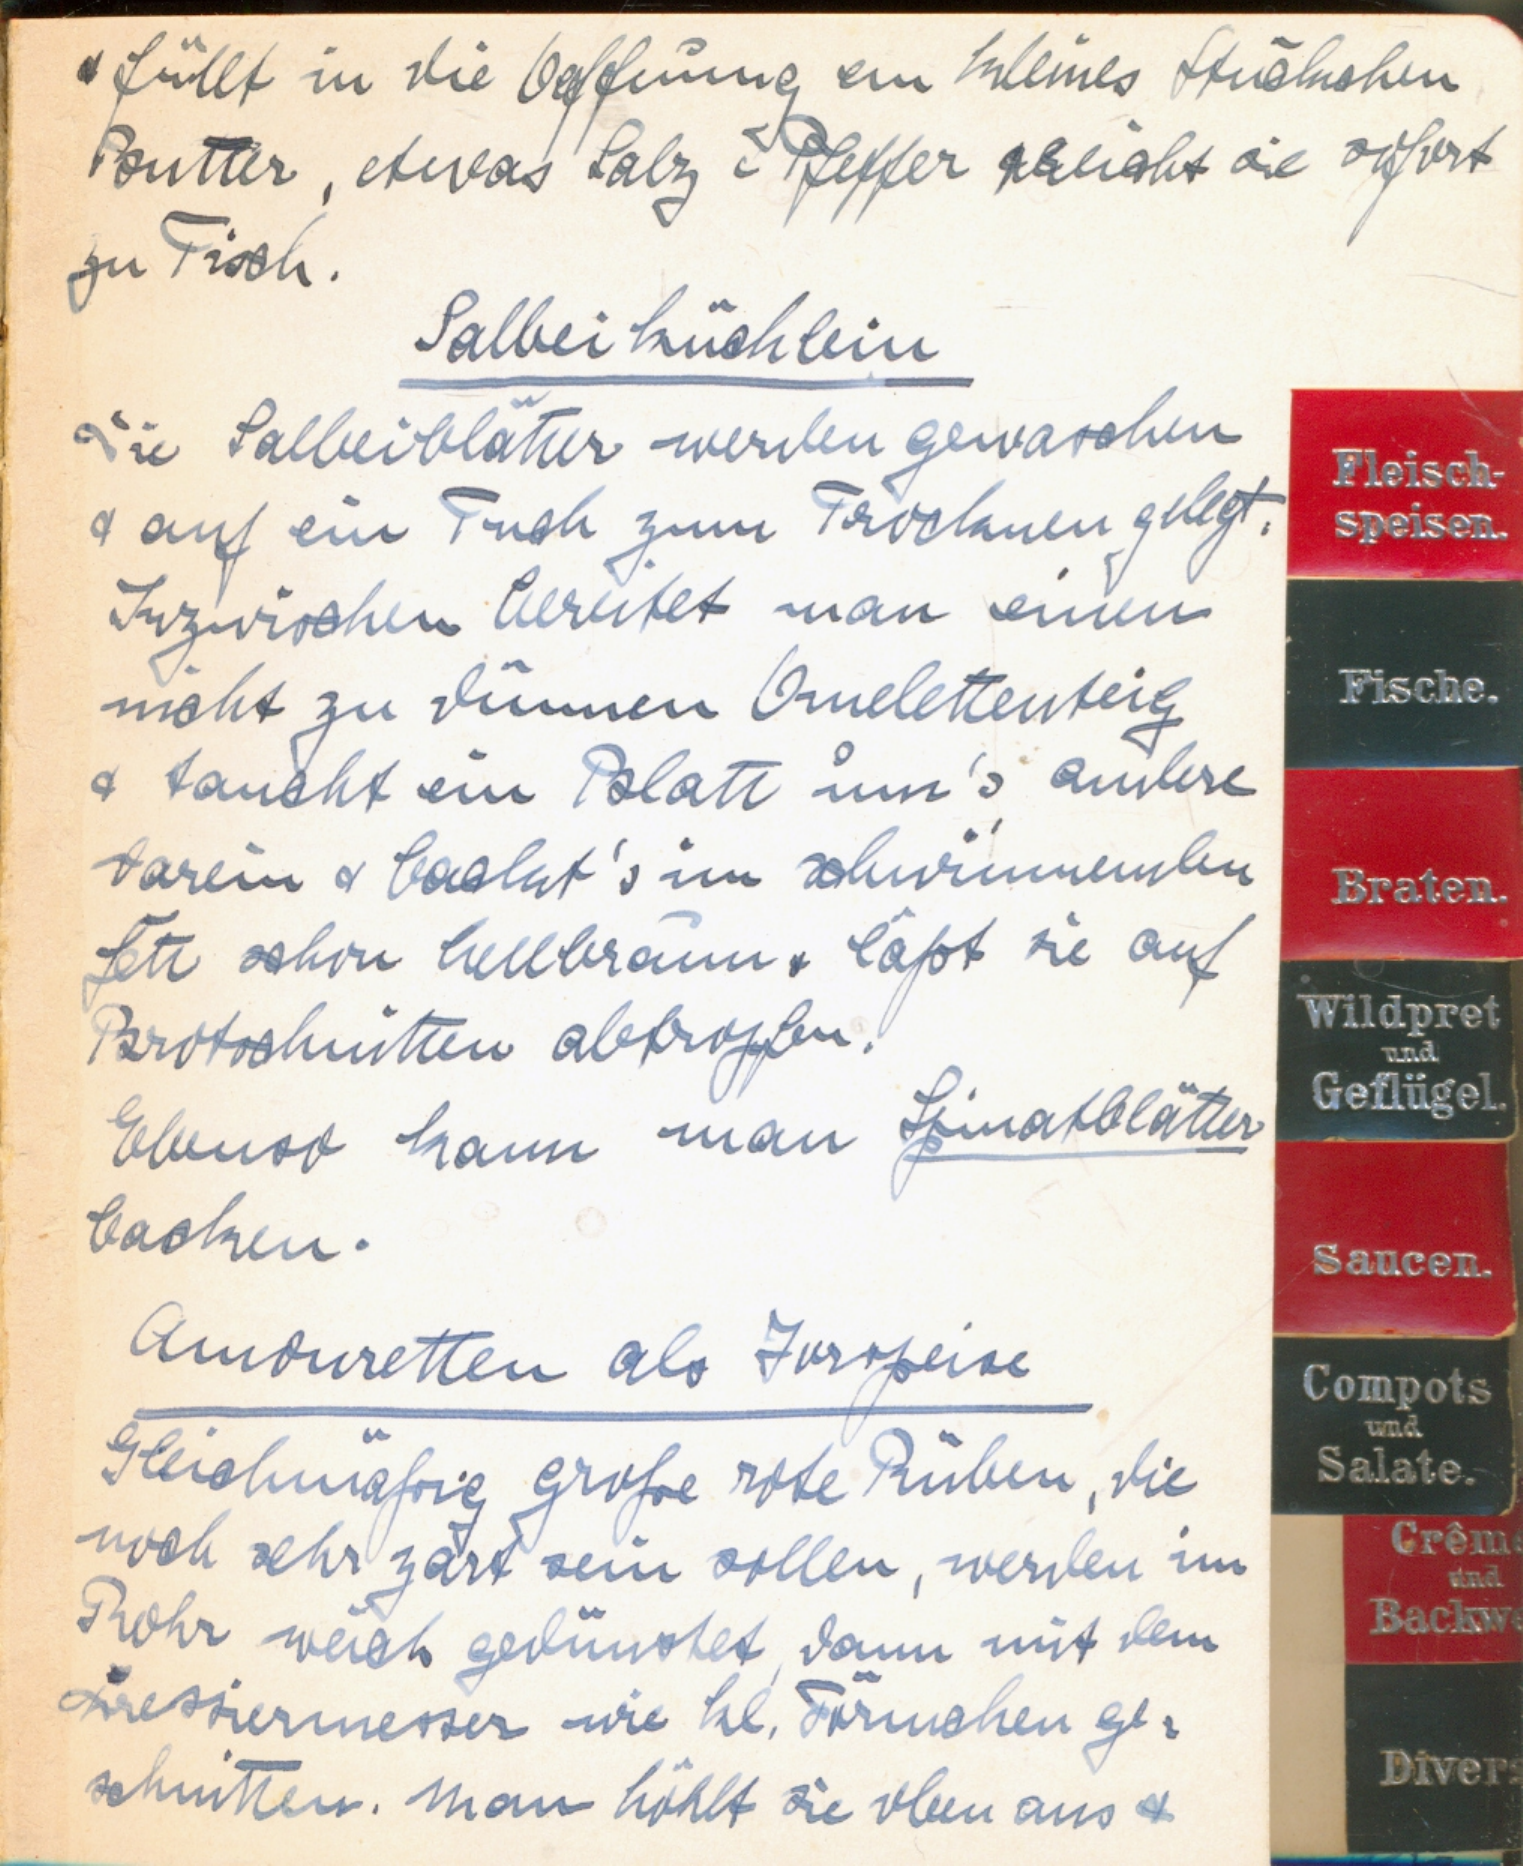 & füllt in die Oeffnung ein kleines Stückchen
Butter, etwas Salz & Pfeffer & reicht sie sofort
zu Tisch.
Salbeiküchlein
Die Salbeiblätter werden gewaschen
& auf ein Tuch zum Trocknen gelegt.
Inzwischen bereitet man einen
nicht zu dünnen Omelettenteig
& taucht ein Blatt um's andere
darein & backt's im schwimmenden
Fett schön hellbraun & läßt sie auf
Brotschnitten abtropfen.
Ebenso kann man Spinatblätter
backen.
Amouretten als Vorspeise
Gleichmäßig große rote Rüben, die
noch sehr zart sein sollen, werden im
Rohr weich gedünstet, dann mit dem
Dressiermesser wie kl. Förmchen ge-
schnitten. Man höhlt sie oben aus &
Fleisch-
speisen.
Fische.
Braten.
Wildpret
und
Geflügel.
Saucen.
Compots
und
Salate.
Crême
und
Backwe
Divers